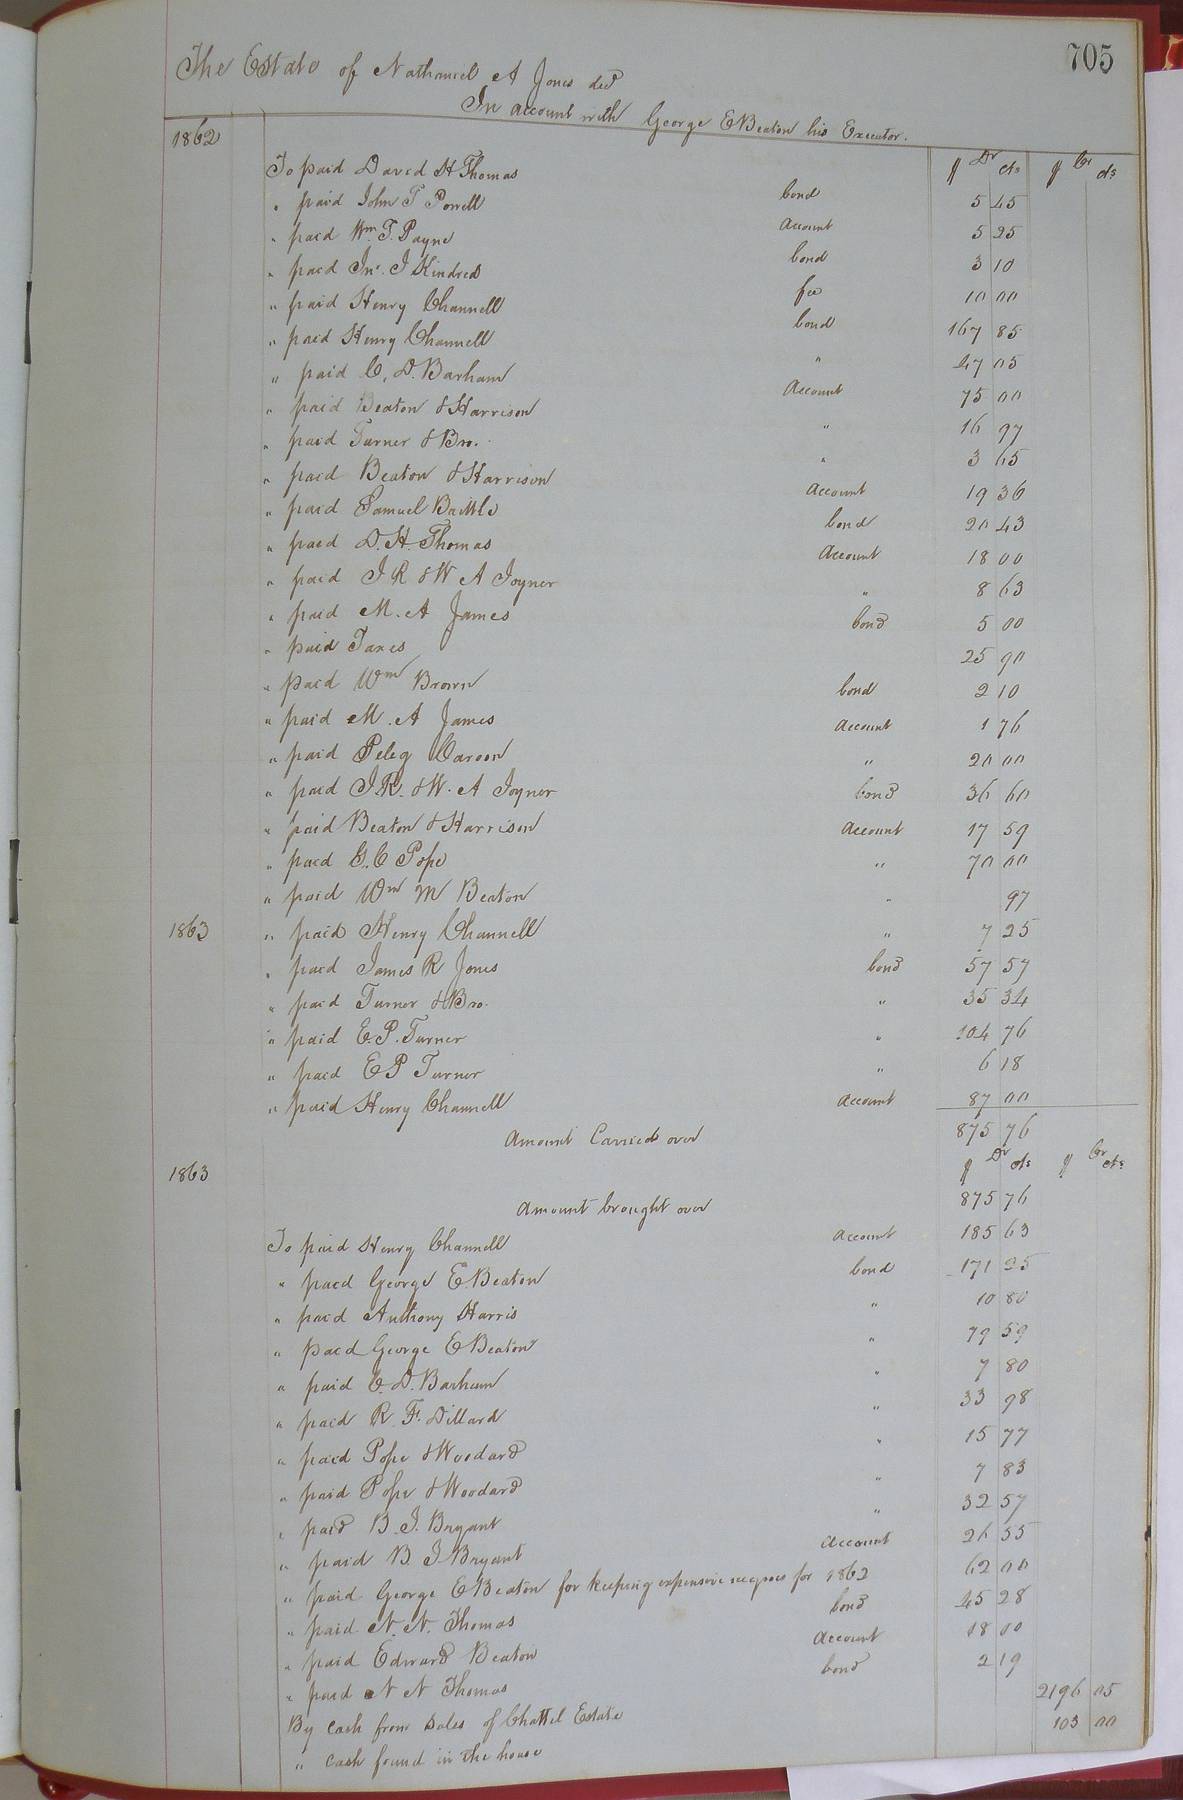 705
The Estate of Nathaniel A Jones decd
In account with George E Beaton his Executor.
1862 $ Dr cts $ Cr cts
To paid David H Thomas bond 5 45
" paid John T Powell Account 5 25
" paid Wm. T. Payne bond 3 10
" paid Jno. J Kindred fee 10 00
" paid Henry Channell bond 167 85
" paid Henry Channell " 47 05
" paid C. D. Barham Account 75 00
" paid Beaton & Harrison " 16 97
" paid Turner & Bro. " 3 65
" paid Beaton & Harrison Account 19 36
" paid Samuel Battle bond 20 43
" paid D. H. Thomas Account 18 00
" paid J R & W A Joyner " 8 63
" paid M. A James bond 5 00
" paid Taxes 25 90
" paid Wm Brown bond 2 10
" paid M. A James account 1 76
" paid Peleg Carson " 20 00
" paid J. R. & W. A Joyner bond 36 60
" paid Beaton & Harrison Account 17 59
" paid G. C Pope " 70 00
" paid Wm M Beaton " 97
1863 " paid Henry Channell " 7 25
" paid James R Jones bond 57 57
" paid Turner & Bro. " 35 34
" paid E. P. Turner " 104 76
" paid E P Turner " 6 18
" paid Henry Channell Account 87 00
Amount Carried over 875 76
1863 $ Dr cts $ Cr cts
Amount brought over 875 76
To paid Henry Channell Account 185 63
" paid George E Beaton bond 171 25
" paid Anthony Harris " 10 80
" paid George E Beaton " 79 59
" paid C. D. Barham " 7 80
" paid R. F. Dillard " 33 98
" paid Pope & Woodard " 15 77
" paid Pope & Woodard " 7 83
" paid B. J. Bryant " 32 57
" paid B. J Bryant account 26 55
" paid George E Beaton for keeping expensive negroes for 1862 62 00
" paid N. N. Thomas bond 45 28
" paid Edward Beaton account 18 00
" paid N N Thomas bond 2 19
By cash from sales of Chattel Estate 2196 05
" cash found in the house 103 00